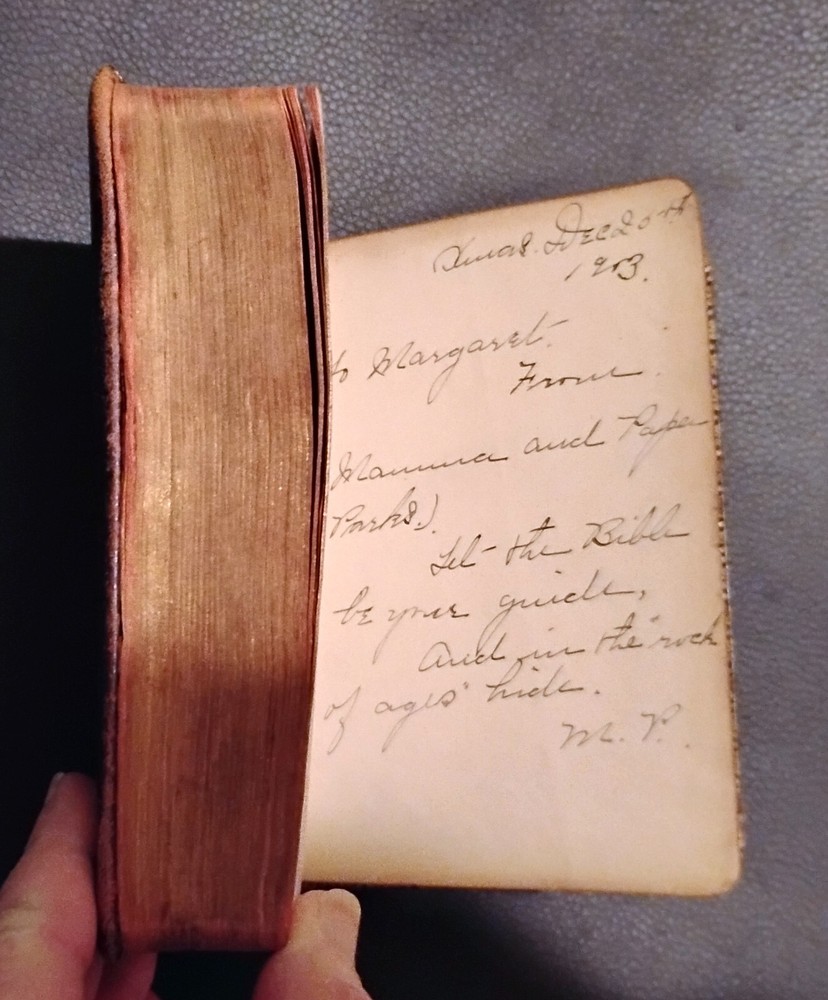 Xmas. Dec 25th
1903.
to Margaret.
From
Mamma and Papa
Parks.)
Let the Bible
be your guide,
And in the "rock
of ages" hide.
M. P.